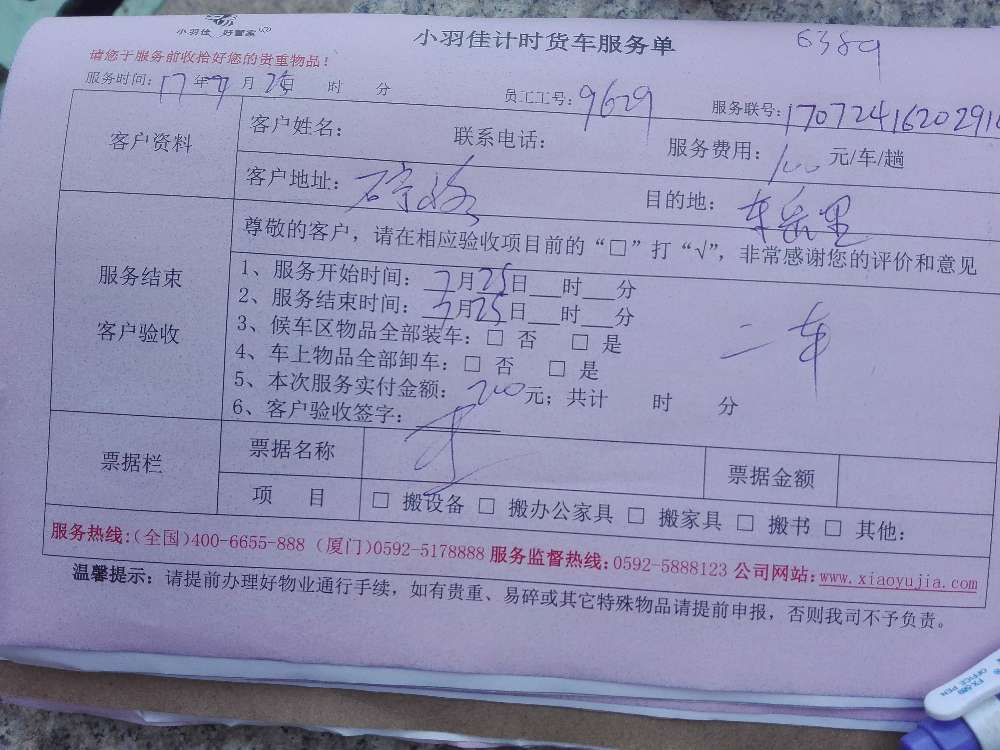 小羽佳 好管家
小羽佳计时货车服务单
6389
请您于服务前收拾好您的贵重物品！
服务时间：17年7月25 时 分
员工工号：9629
服务联号：1707241620291
客户资料
客户姓名： 联系电话： 服务费用：100元/车/趟
客户地址： 目的地：
服务结束
客户验收
尊敬的客户，请在相应验收项目前的“□”打“√”，非常感谢您的评价和意见
1、服务开始时间：7月25日___时___分
2、服务结束时间：7月25日___时___分
3、候车区物品全部装车：□ 否 □ 是
4、车上物品全部卸车：□ 否 □ 是
5、本次服务实付金额：200元；共计 时 分
6、客户验收签字：
二车
票据栏
票据名称 票据金额
项 目 □ 搬设备 □ 搬办公家具 □ 搬家具 □ 搬书 □ 其他：
服务热线：（全国）400-6655-888（厦门）0592-5178888 服务监督热线：0592-5888123 公司网站：www.xiaoyujia.com
温馨提示：请提前办理好物业通行手续，如有贵重、易碎或其它特殊物品请提前申报，否则我司不予负责。
OFFICE PEN